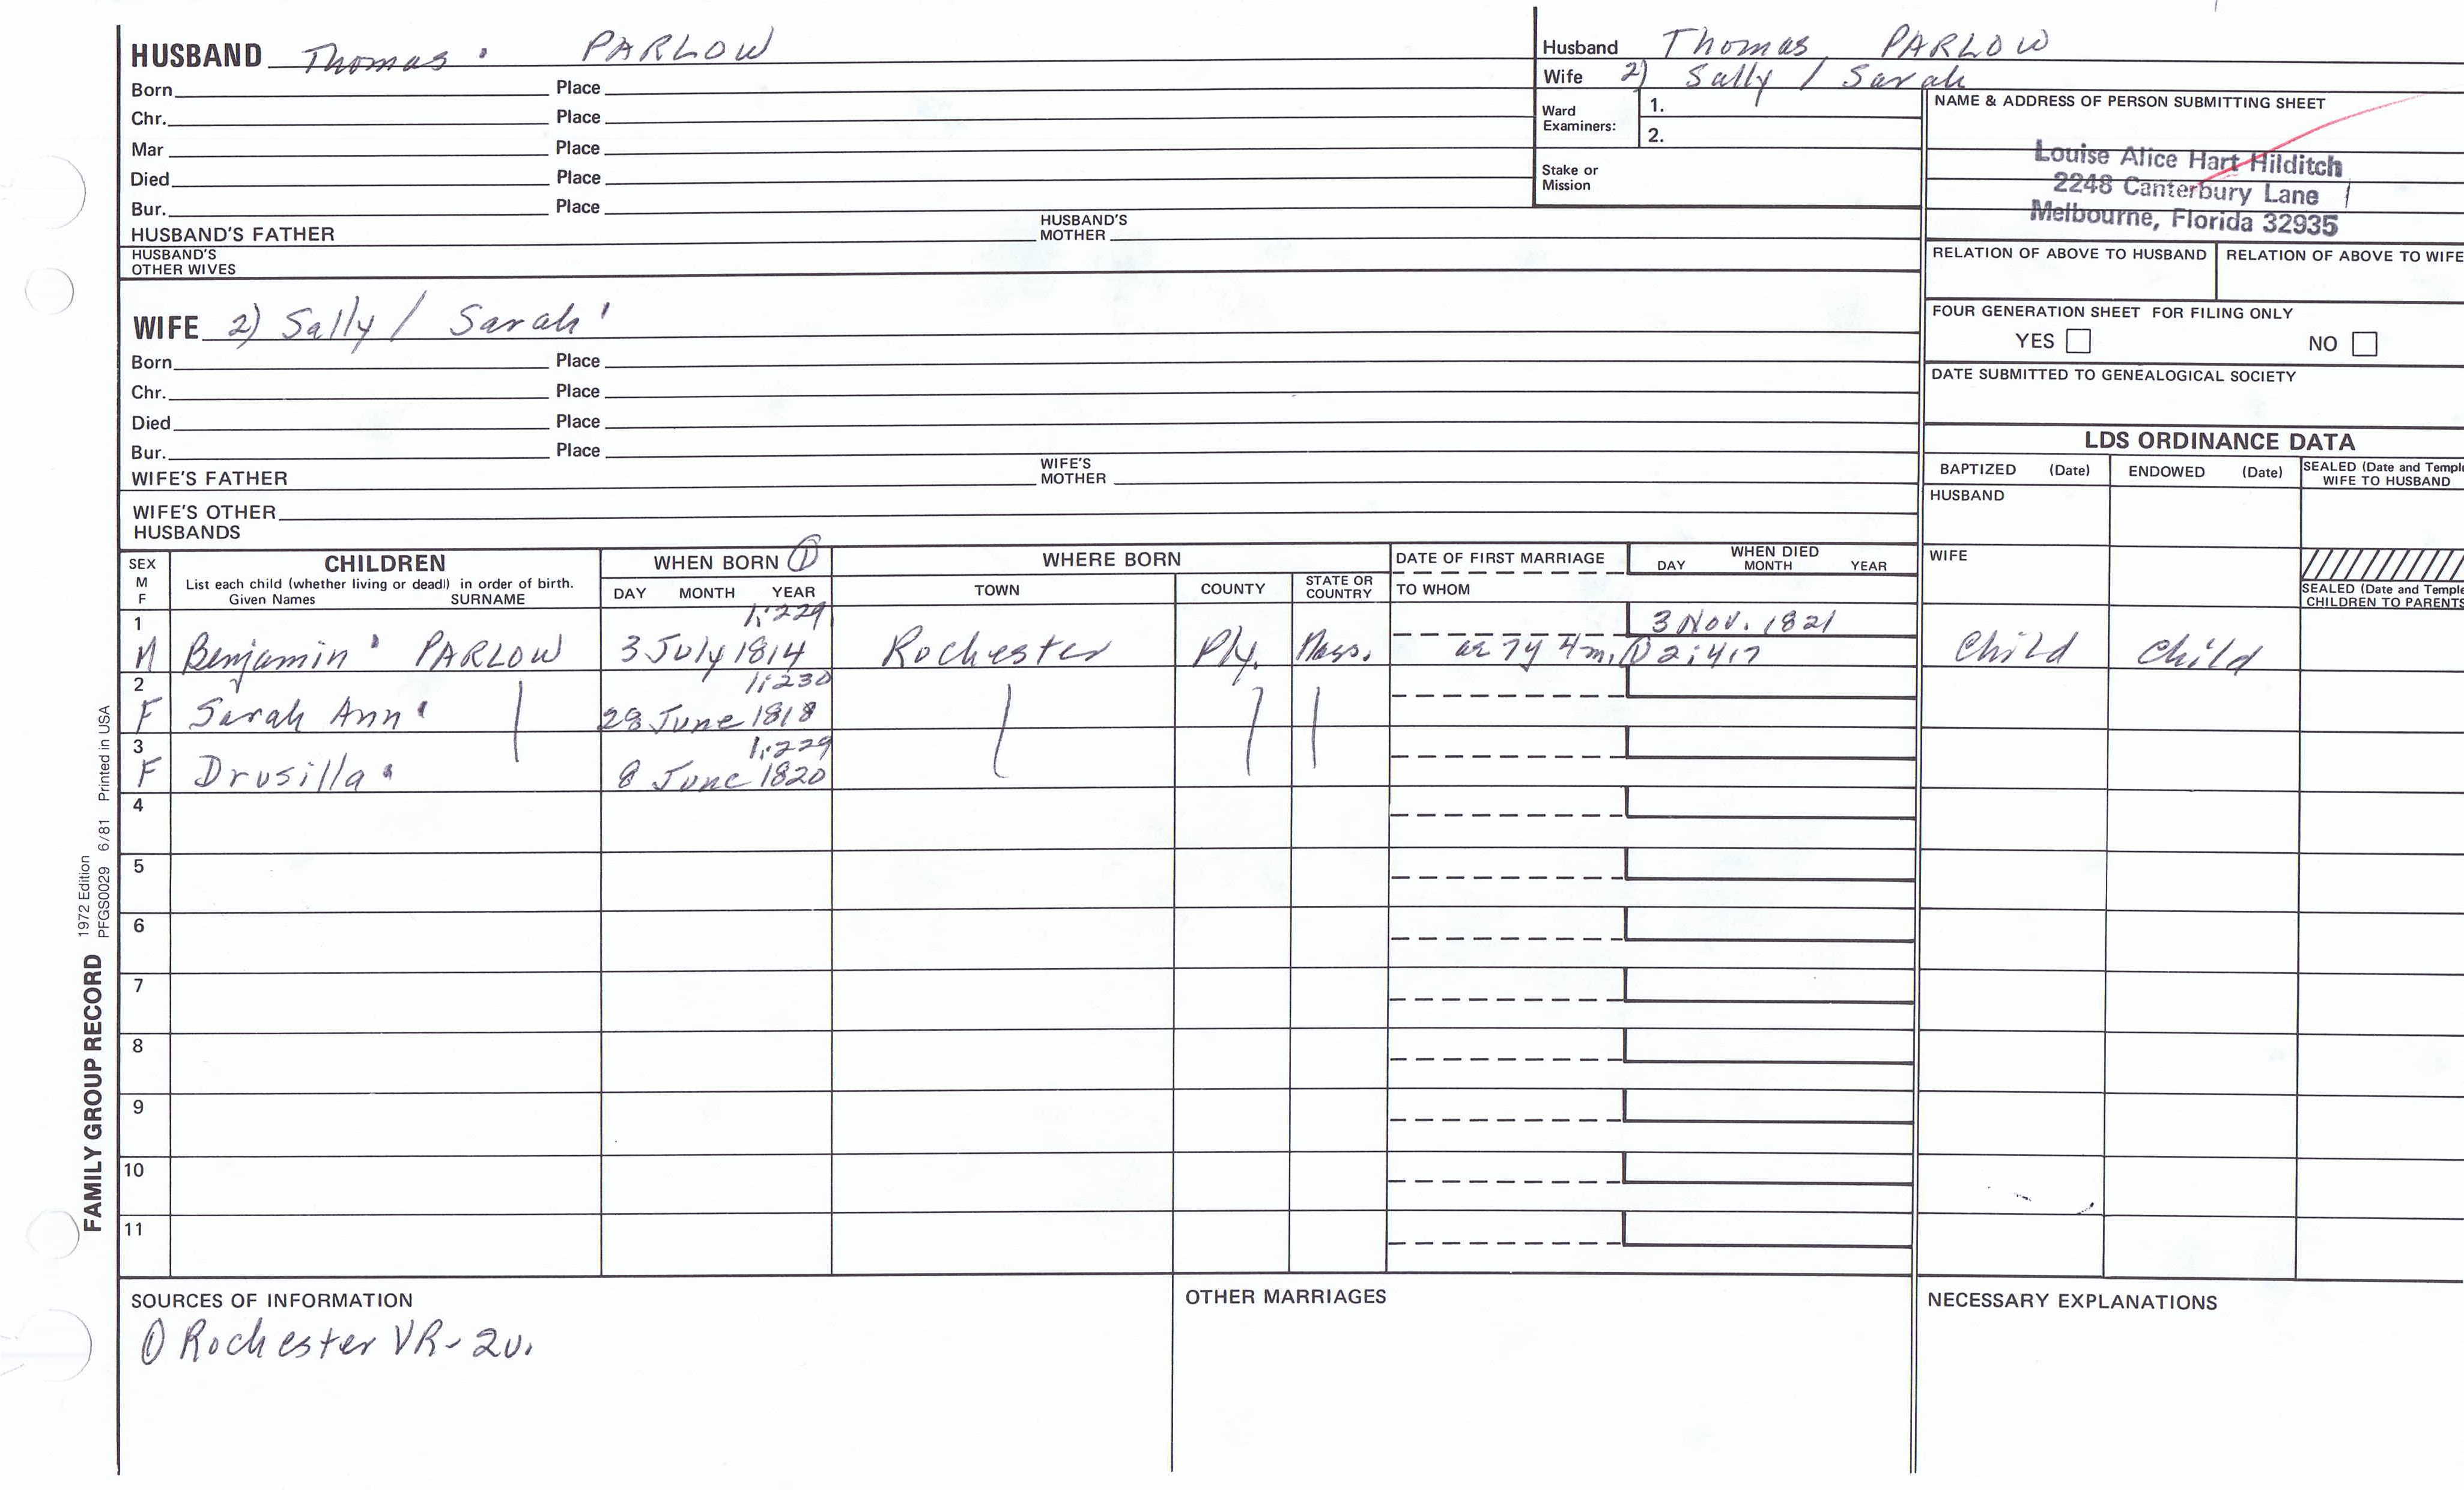 HUSBAND Thomas PARLOW
Born Place
Chr. Place
Mar Place
Died Place
Bur. Place
HUSBAND'S FATHER HUSBAND'S MOTHER
HUSBAND'S OTHER WIVES
WIFE 2) Sally / Sarah
Born Place
Chr. Place
Died Place
Bur. Place
WIFE'S FATHER WIFE'S MOTHER
WIFE'S OTHER HUSBANDS
Husband Thomas PARLOW
Wife 2) Sally / Sarah
Ward Examiners: 1.
2.
Stake or Mission
NAME & ADDRESS OF PERSON SUBMITTING SHEET
Louise Alice Hart Hilditch
2248 Canterbury Lane
Melbourne, Florida 32935
RELATION OF ABOVE TO HUSBAND RELATION OF ABOVE TO WIFE
FOUR GENERATION SHEET FOR FILING ONLY
YES NO
DATE SUBMITTED TO GENEALOGICAL SOCIETY
LDS ORDINANCE DATA
BAPTIZED (Date) ENDOWED (Date) SEALED (Date and Temple WIFE TO HUSBAND
HUSBAND
WIFE
SEALED (Date and Temple CHILDREN TO PARENTS
SEX M F CHILDREN WHEN BORN ① WHERE BORN DATE OF FIRST MARRIAGE WHEN DIED
List each child (whether living or dead) in order of birth.
Given Names SURNAME DAY MONTH YEAR TOWN COUNTY STATE OR COUNTRY TO WHOM DAY MONTH YEAR
1 1:229 3 Nov. 1821
M Benjamin PARLOW 3 July 1814 Rochester Ply. Mass. ae 7y 4m, ① 2:417 Child Child
2 1:230
F Sarah Ann 28 June 1818
3 1:229
F Drusilla 8 June 1820
4
5
6
7
8
9
10
11
SOURCES OF INFORMATION OTHER MARRIAGES NECESSARY EXPLANATIONS
① Rochester VR - 2v.
FAMILY GROUP RECORD 1972 Edition
PFGS0029 6/81 Printed in USA